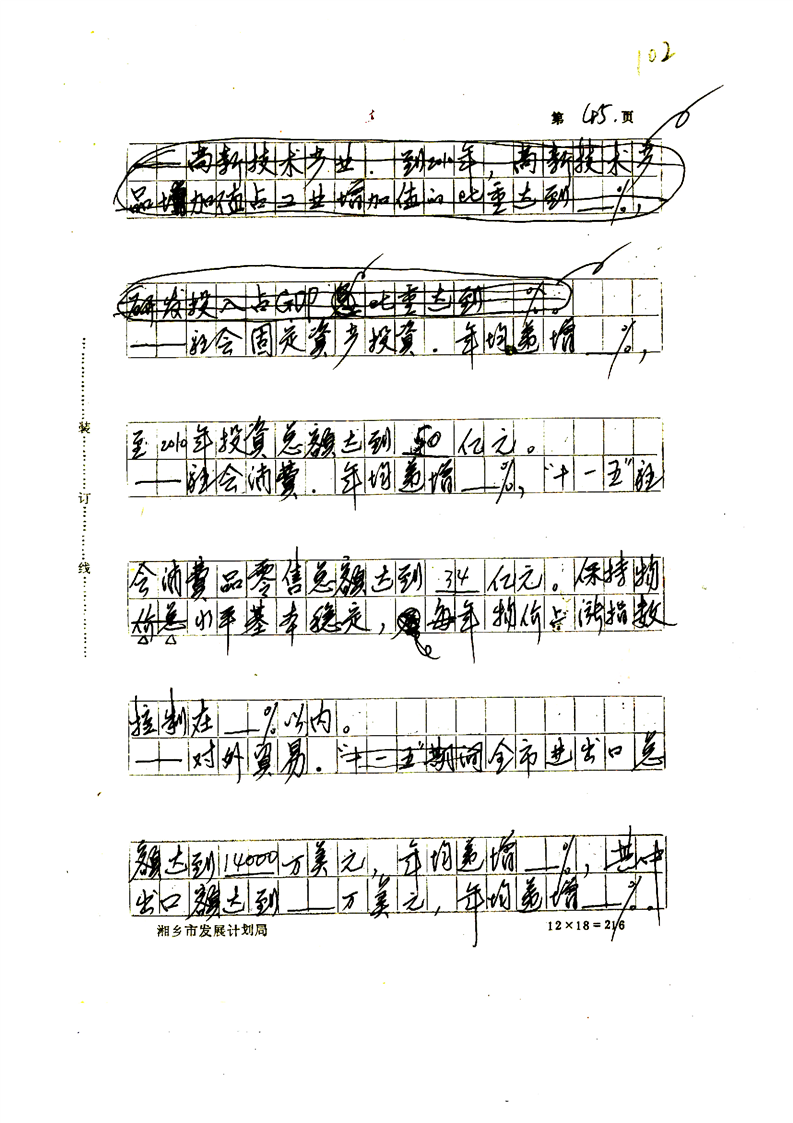 102
第 45. 页
——高新技术产业.到2010年,高新技术产
品增加值占工业增加值的比重达到__%,
研发投入占GDP 比重达到__%。
——社会固定资产投资.年均递增__%,
至2010年投资总额达到50亿元。
——社会消费.年均递增__%,"十一五"社
会消费品零售总额达到34亿元。保持物
价总水平基本稳定,每年物价上涨指数
控制在__%以内。
——对外贸易."十一五"期间全市进出口总
额达到14000万美元,年均递增__%,其中
出口额达到__万美元,年均递增__%。
湘乡市发展计划局 12×18=216
装
订
线